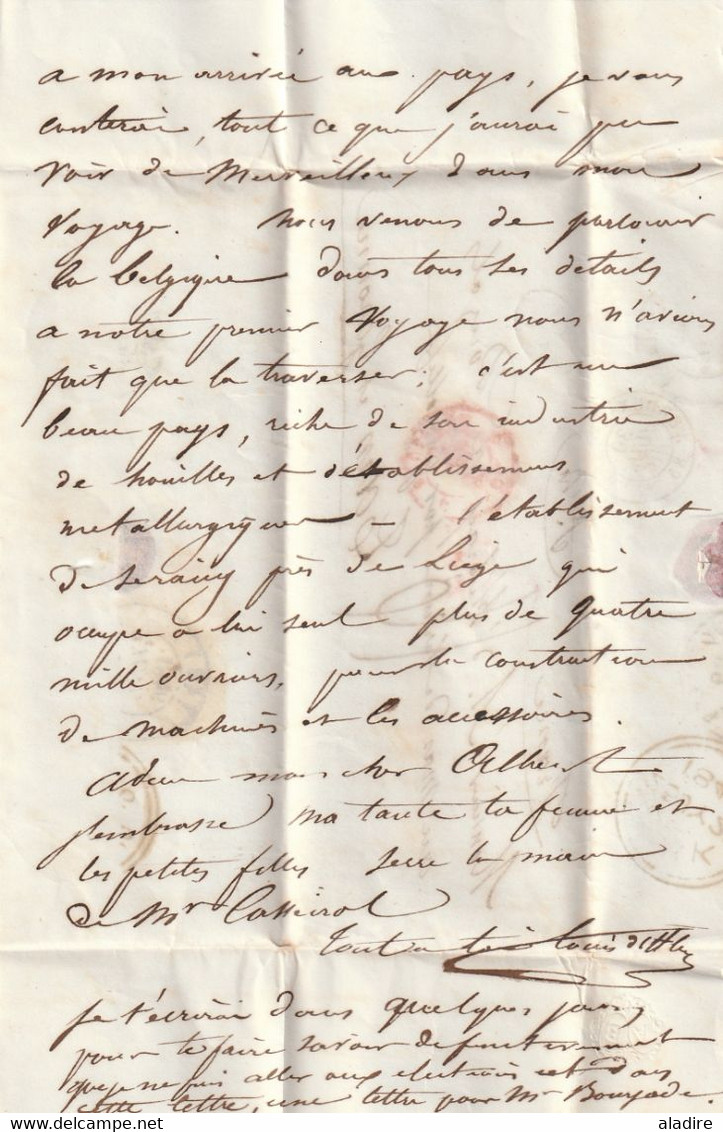 a mon arrivée au pays, je vous
conterai, tout ce que j'aurai pu
voir de Merveilleux dans mon
Voyage. Nous venons de parcourir
la Belgique dans tous ses details
a notre premier Voyage nous n'avions
fait que la traverser; c'est un
beau pays, riche de son industrie
de houilles et d'établissemens
metallurgiques — l'etablissement
de Seraing près de Liege qui
occupe a lui seul plus de quatre
mille ouvriers, pour la construction
de machines et les accessoires.
Adieu mon cher Albert
j'embrasse ma tante ta femme et
les petites filles serre la main
de Mr
tout a toi Louis
Je t'écrirai dans quelques jours
pour te faire savoir definitivement
que je ne puis aller aux elections et dans
cette lettre, une lettre pour Mr
aladire